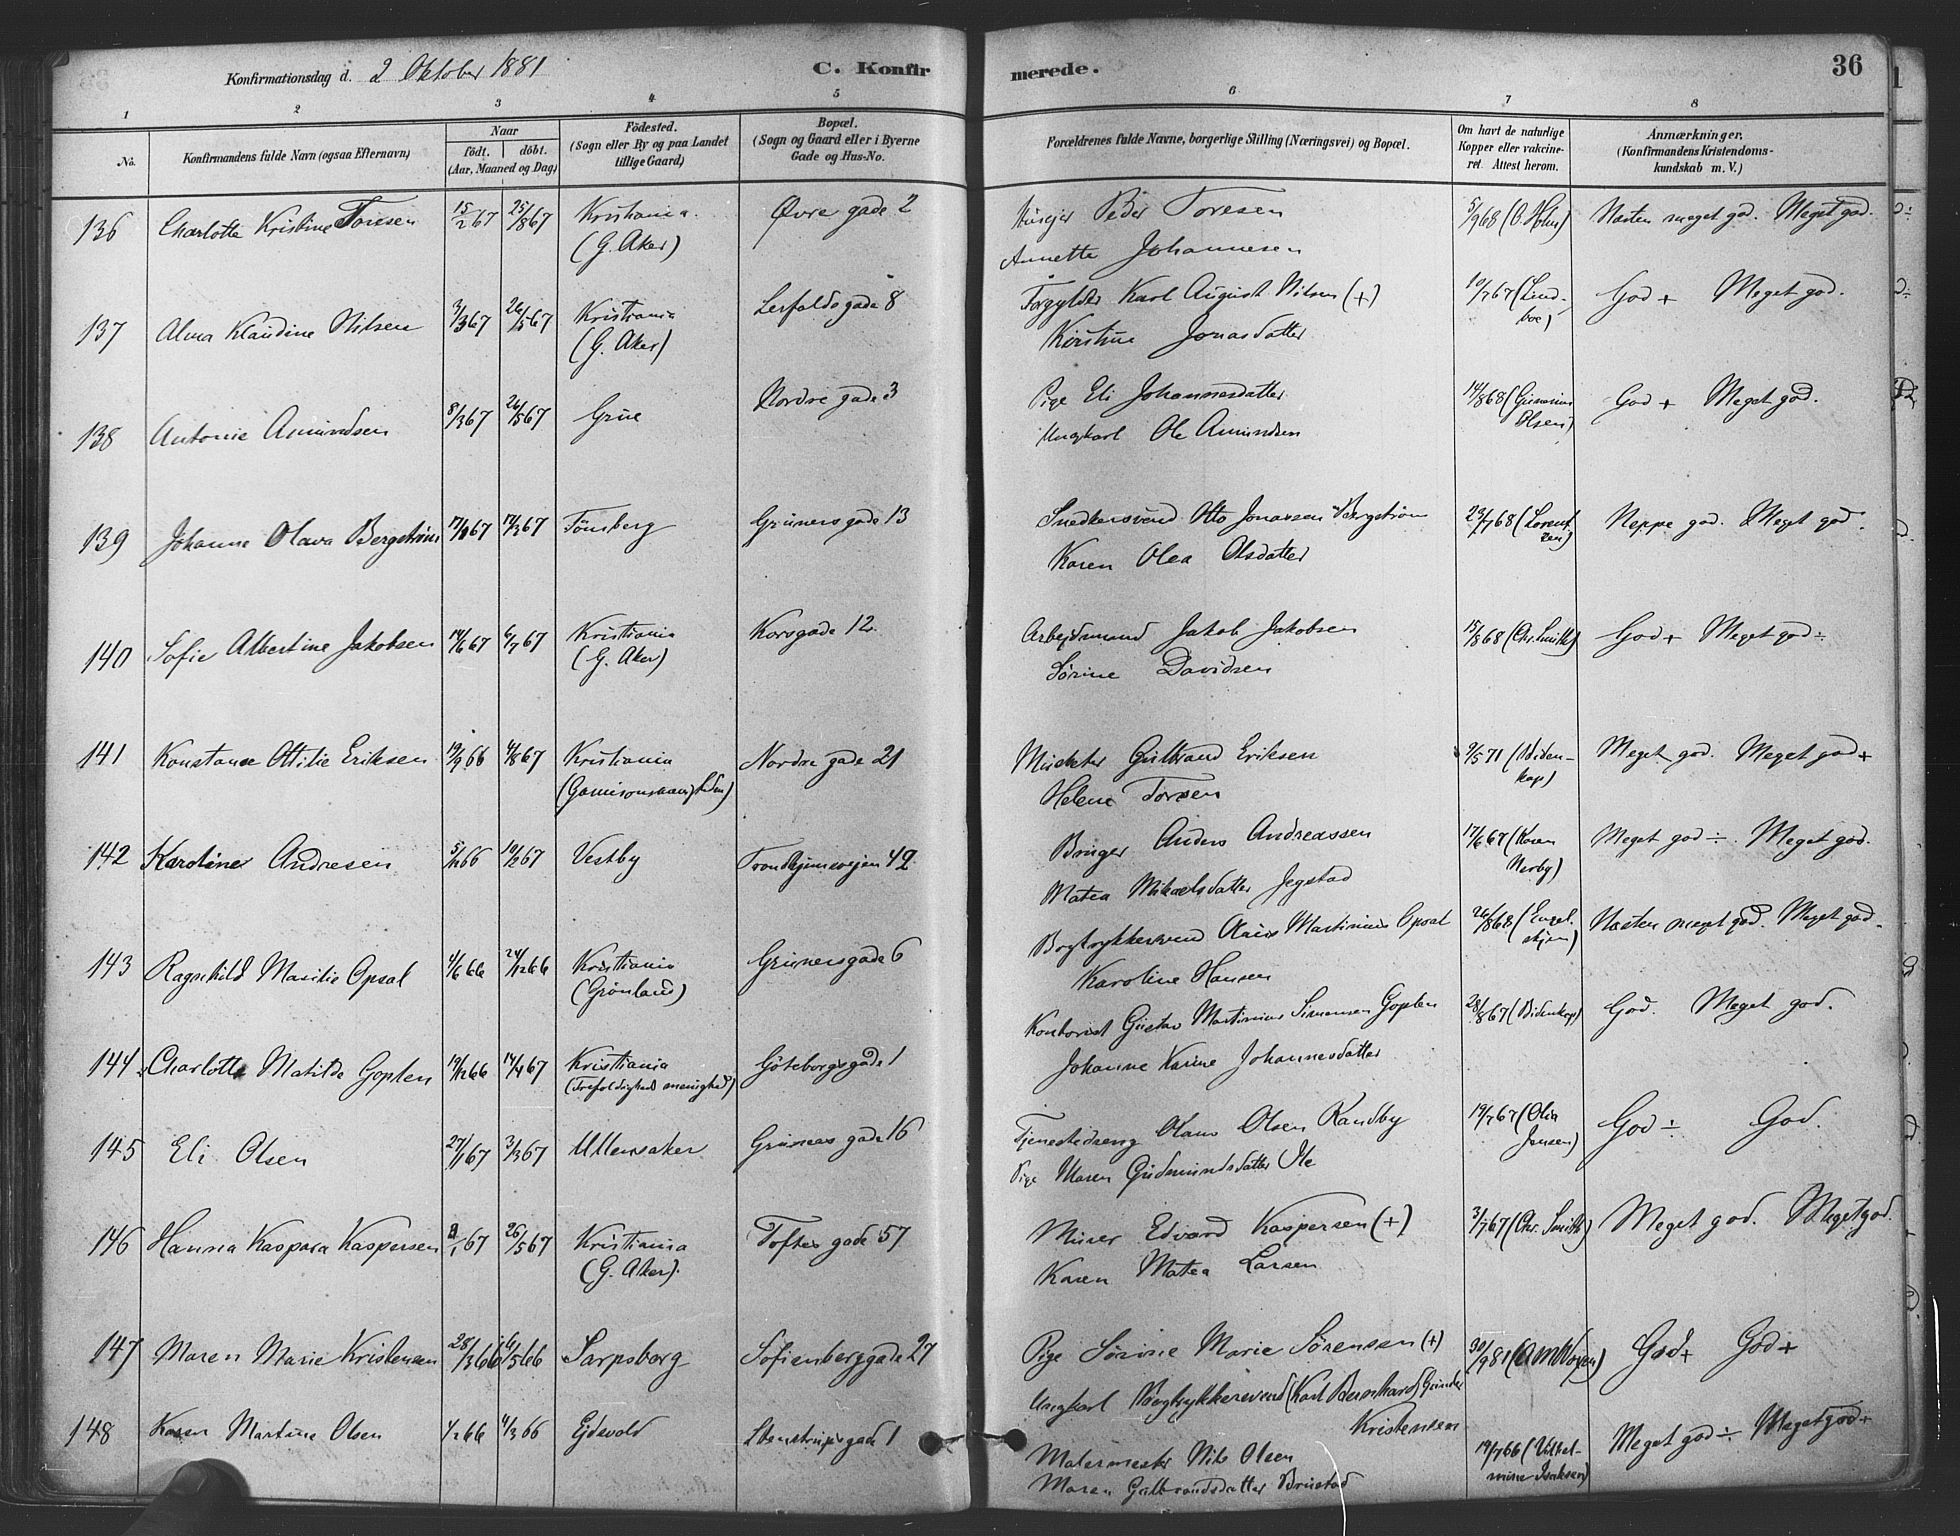 Konfirmationsdag d. 2 Oktober 1881
C. Konfirmerede.
36
1 2 3 4 5 6 7 8
No. Konfirmandens fulde Navn (ogsaa Efternavn) Naar födt. döbt. (Aar, Maaned og Dag) Födested. (Sogn eller By og paa Landet tillige Gaard) Bopæl. (Sogn og Gaard eller i Byerne Gade og Hus-No. Forældrenes fulde Navne, borgerlige Stilling (Næringsvei) og Bopæl. Om havt de naturlige Kopper eller vakcineret. Attest herom. Anmærkninger. (Konfirmandens Kristendomskundskab m. V.)
136 Charlotte Kristine Toresen 15/2 67 25/8 67 Kristiania. (G. Aker) Øvre gade 2 Peder Toresen 5/9 68 (C. Holm) Næsten meget god. Meget god.
Annette Johannesen
137 Alma Klaudine Nilsen 3/3 67 26/5 67 Kristiania (G. Aker) 8 Forgylder Karl August Nilsen (+) 10/7 67 (Lindboe) God + Meget god.
Kirstine Jonasdatter
138 Antonie Amundsen 8/3 67 26/5 67 Grue Nordre gade 3 Pige Eli Johannesdatter 14/8 68 (Gunerius Olsen) God + Meget god.
Ungkarl Ole Amundsen
139 Johanne Olava Bergström 17/3 67 Tönsberg Grünersgade 13 Snedkersvend Otto Jonassen Bergström 23/7 68 (Lorentzen) Neppe god. Meget god.
Karen Olea Olsdatter
140 Sofie Albertine Jakobsen 14/6 67 6/7 67 Kristiania (G. Aker) Korsgade 12. Arbejdsmand Jakob Jakobsen 15/8 68 (Chr. Smith) God + Meget god ÷
Sørine Davidsen
141 Konstanse Ottilie Eriksen 19/9 66 4/8 67 Kristiania (Garnisonsmenigheden) Nordre gade 21 Gulbrand Eriksen 9/5 71 (Bidenkap) Meget god. Meget god +
Helene Torsen
142 Karoline Andresen 5/11 66 10/2 67 Vestby Trondhjemsvejen 42 Bruger Anders Andreassen 17/6 67 (Karen Nerby) Meget god ÷. Meget god.
Matea Mikaelsdatter Jegstad
143 Ragnhild Masilie Opsal 4/6 66 24/12 66 Kristiania (Grönland) Grünersgade 6 Bogtrykkersvend Martinius Opsal 26/8 68 (Engelskjøn) Næsten meget god. Meget god.
Karoline Hansen
144 Charlotte Matilde Goplen 19/12 66 14/4 67 Kristiania (Trefoldigheds menighed) Göteborgsgade 1 Kontorist Gustav Martinius Simensen Goplen 28/8 67 (Bidenkap) God. Meget god.
Johanne Karine Johannesdatter
145 Eli Olsen 27/1 67 3/3 67 Ullensaker Grüners gade 16 Tjenestedreng Olaus Olsen Randby 19/7 67 (Olia Jensen) God ÷ God.
Pige Maren Gudmundsdatter Ile
146 Hanna Kaspara Kaspersen 8/1 67 26/5 67 Kristiania (G. Aker). Toftes gade 57 Murer Edvard Kaspersen (+) 3/7 67 (Chr. Smith) Meget god. Meget god.
Karen Matea Larsen
147 Maren Marie Kristensen 28/3 66 6/5 66 Sarpsborg Sofienberggade 27 Pige Sørine Marie Sørensen (+) 30/9 81 (A M Voxen) God + God +
Ungkarl Bogtrykkersvend (Karl Bernhard Gunder Kristensen
148 Karen Martine Olsen 1/2 66 4/3 66 Ejdsvold Stenstrupsgade 1 Malermester Nils Olsen 19/7 66 (Vilhelmine Isaksen) Meget god ÷. Meget god +
Maren Gulbrandsdatter Brustad